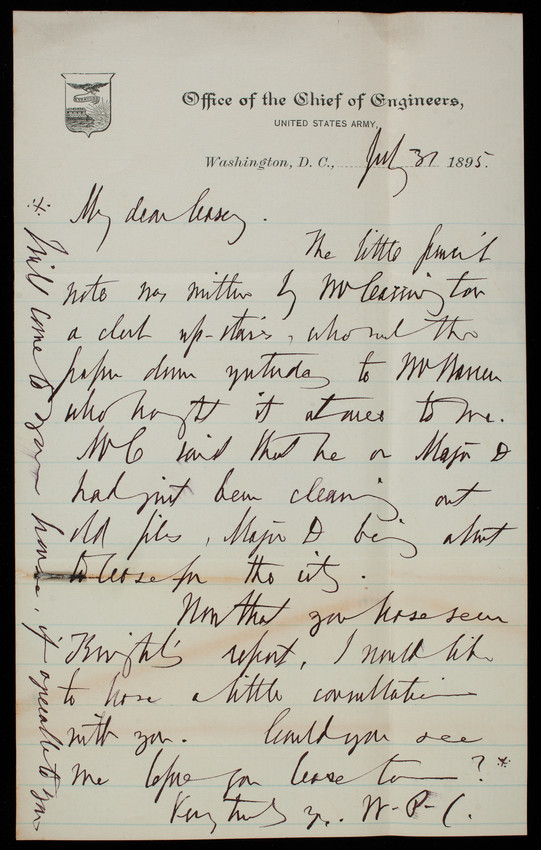 Office of the Chief of Engineers,
UNITED STATES ARMY,
Washington, D. C., July 31 1895.
My dear Casey.
The little pencil
note was written by Mr Cassington
a clerk up-stairs, who sent the
paper down yesterday to Mr Warren
who brought it at once to me.
Mr C said that he or Major D
had just been cleaning out
old files, Major D being about
to leave for the city.
Now that you have seen
Knight's report, I would like
to have a little consultation
with you. Could you see
me before you leave town?*
Very truly yr. W-P-C.
* Will come to your house, if agreeable to you